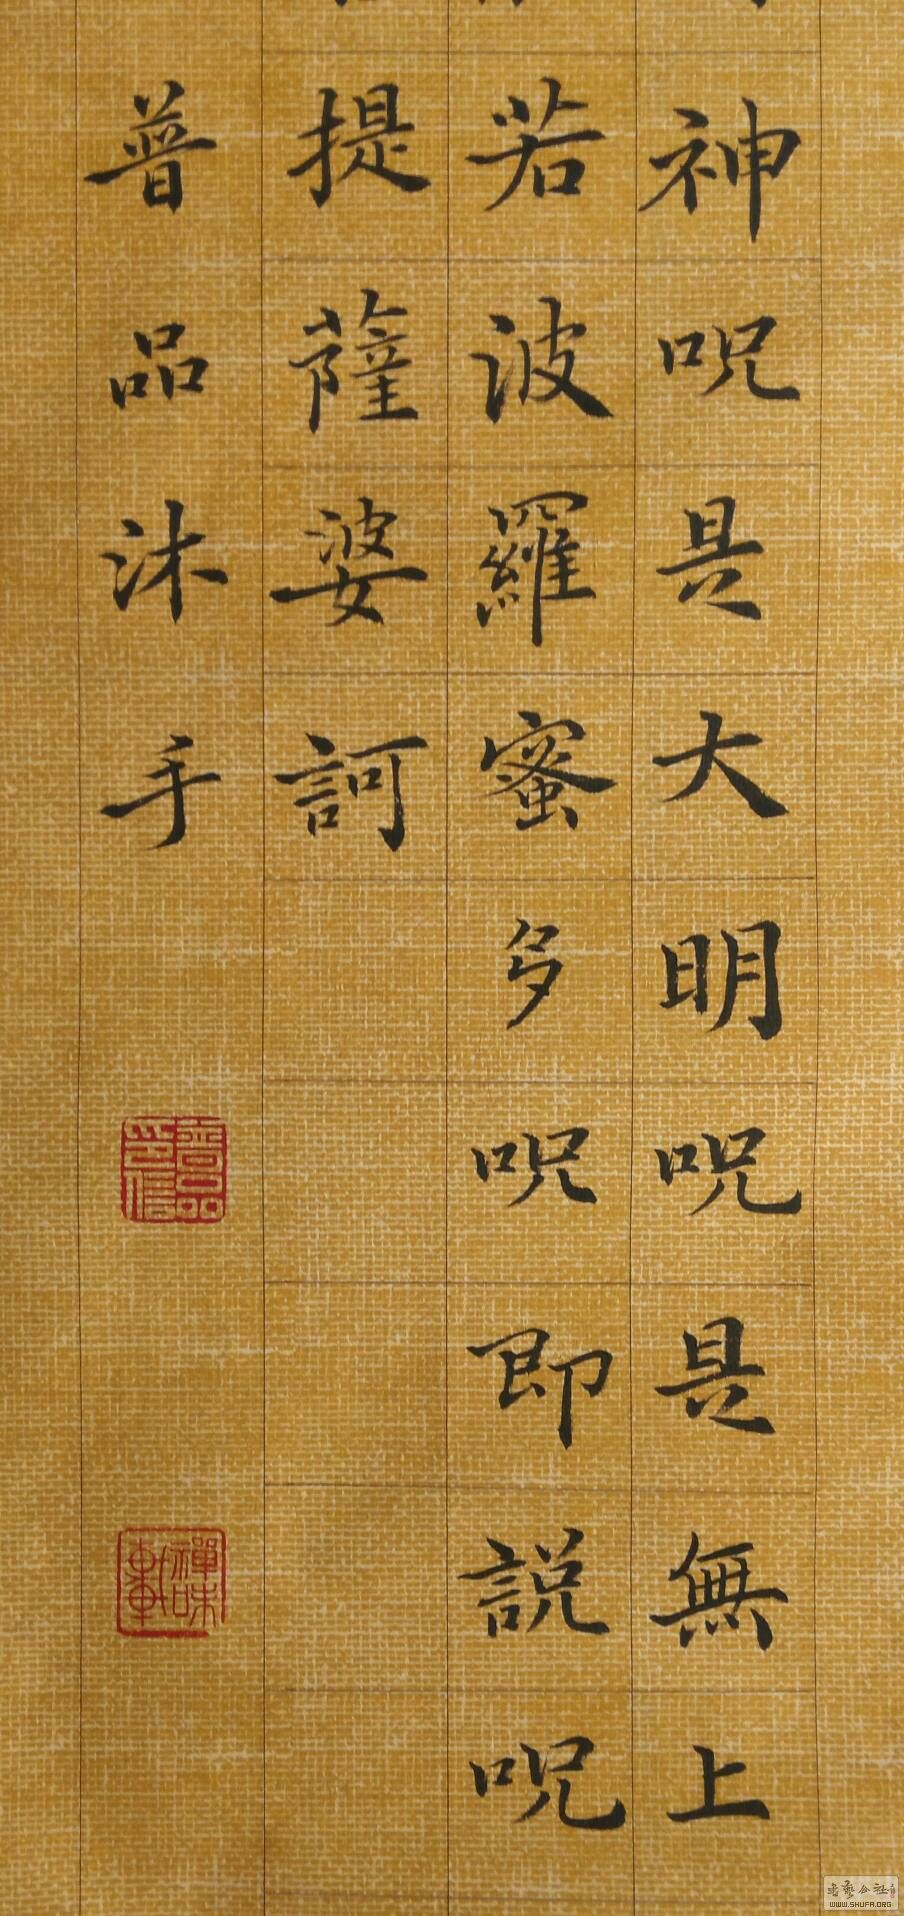 神呪是大明呪是無上
若波羅蜜多呪即説呪
提薩婆訶
普品沐手
普品印信
禪味軒
老藝公社
WWW.SHUFA.ORG